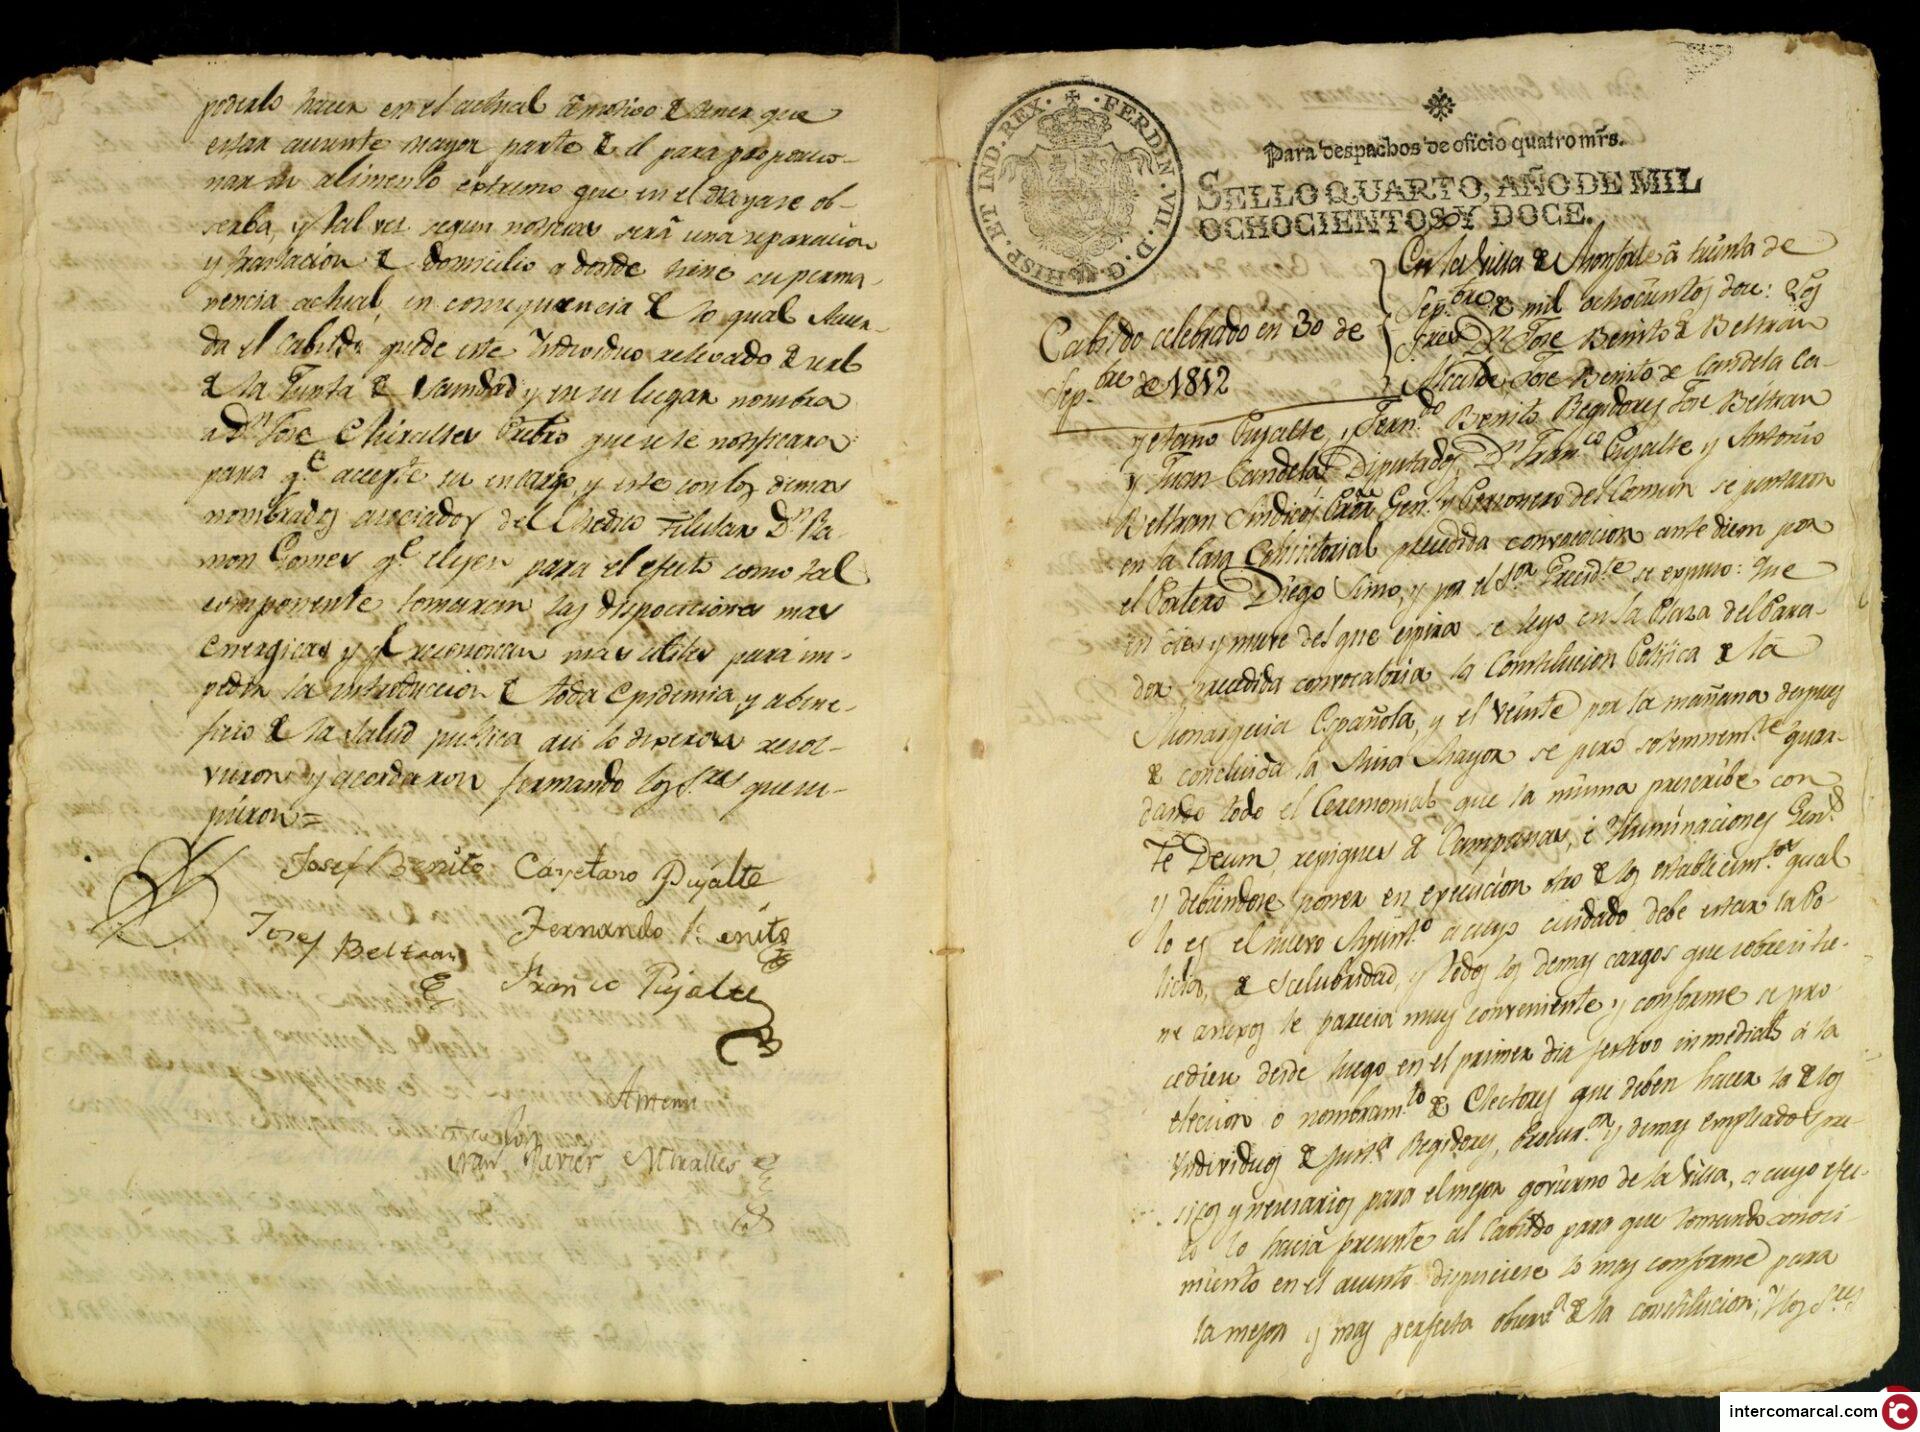 poderlo hacer en el actual con motivo de tener que
estar ausente mayor parte de el para proporcio-
nar su alimento extremo que en el dia ya se ob-
serba, y tal vez segun noticias será una reparacion
y traslacion de domicilio a donde tiene su perma-
nencia actual, en consequencia de lo qual Acuer-
da el Cabildo quede este Individuo relevado de val
de la Junta de Sanidad y en su lugar nombra
a Dn Jose Miralles Pbro que se le notificara
para qe accepte su encargo, y este con los demas
nombrados asociados del Medico Titular Dn Ra-
mon Gomes qe elijen para el efecto como tal
componente tomaran las disposiciones mas
energicas y qe reconozcan mas utiles para im-
pedir la introduccion de toda Epidemia, y a bene-
ficio de la salud publica asi lo dixeron resol-
vieron y acordaron firmando los Sres que su-
pieron =
Josef Benito Cayetano Pujalte
Josef Beltran Fernando Benito
Franco Pujalte
Ante mi
Fran Xavier Miralles
FERDIN. VII. D. G. HISP. ET IND. REX.
Para despachos de oficio quatro mrs.
SELLO QUARTO, AÑO DE MIL
OCHOCIENTOS Y DOCE.
Cabildo celebrado en 30 de
Sepbre de 1812
En la Villa de Monforte á treinta de
Sepbre de mil ochocientos doce: Los
Sres Dn Jose Benito de Beltrán
Alcalde, Jose Benito de Candela Ca-
yetano Pujalte, y Ferndo Benito Regidores Jose Beltran
y Juan Candela Diputados, Dn Franco Pujalte y Antonio
Beltran Sindicos Procr Genl y Personero del Comun se juntaron
en la Casa Consistorial precedida convocacion ante diem por
el Portero Diego Simo, y por el Sor Presidte se expuso: Que
en dies y nuebe del que espira se leyo en la Plaza del Para-
dor precedida convocatoria la Constitucion Politica de la
Monarquia Española, y el veinte por la mañana despues
de concluida la Misa Mayor se juro solemnemte guar-
dando todo el Ceremonial que la misma prescribe con
Te Deum, repiques de Campanas, é Iluminaciones Genl
y debiendose poner en execucion otro de los establecimtos qual
lo es el nuevo Ayuntto a cuyo cuidado debe estar la Po-
licia, de salubridad, y todos los demas cargos que sobre si tie-
ne anexos le parecia muy conveniente y conforme se pro-
cediese desde luego en el primer dia festivo inmediato á la
eleccion o nombramto de Electores que deben hacer la de los
Individuos de Justa Regidores, Procuror y demas empleados pre-
sisos y nesesarios para el mejor govierno de la Villa, a cuyo efec-
to lo hacia presente al Cabildo para que tomando conoci-
miento en el asunto dispusiese lo mas conforme para
la mejor y mas perfecta observa de la constitucion; Y los Sres
intercomarcal.com